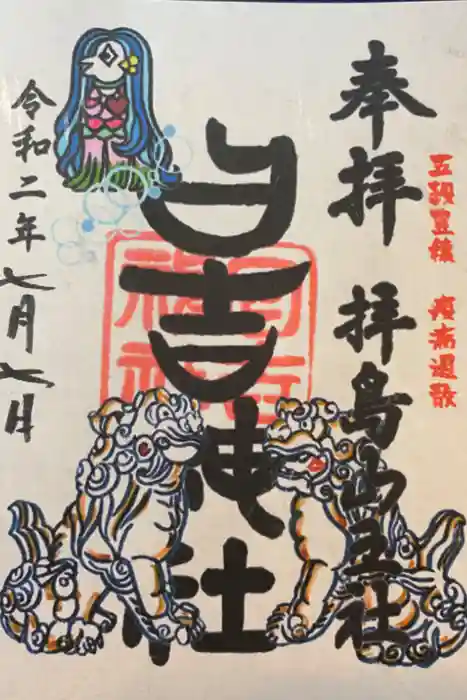 五穀豊穣 疫病退散
奉拝 拝島山王社
日吉神社
令和二年七月七日